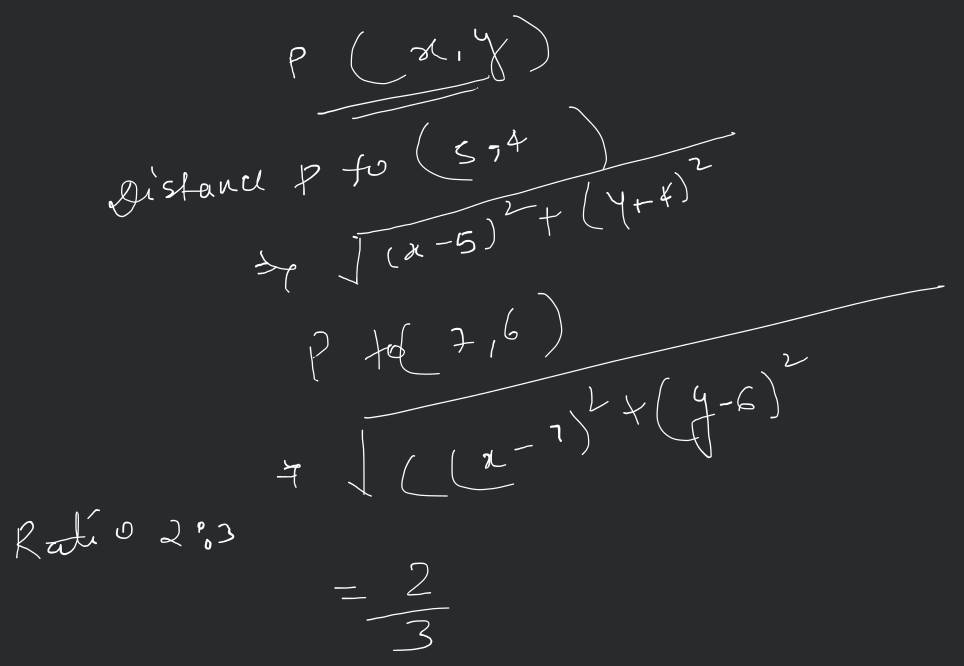 P (x,y)
Distance P to (5,4)
⇒ √(x-5)² + (y+4)²
P to( 7,6)
⇒ √((x-7)² + (y-6)²
Ratio 2:3
= 2/3